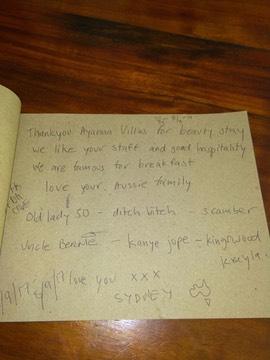 Thankyou Ayanaa Villas for beauty stay
we like your staff and good hospitality
We are famous for breakfast
love your Aussie family
Old lady 50 - ditch bitch - scamber
Uncle Bennie - Kanye jope - kingswood
Kreyla
love you xxx
SYDNEY